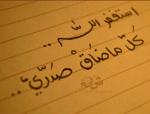 استغفر الله ..
كل ما ضاق صدري ..